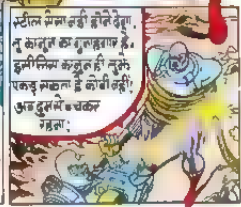 स्टील ऐसा नहीं होने देगा.
तू कानून का गुनाहगार है.
इसीलिए कानून ही तुम्हें
पकड़ सकता है कोबी नहीं!
अब दुम से बचकर
रहना!